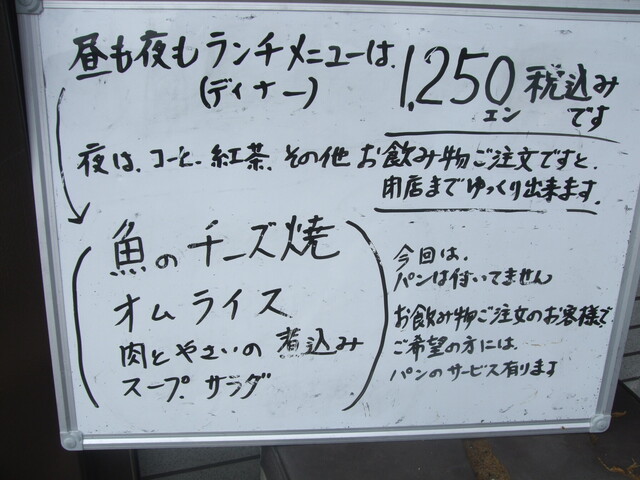 昼も夜もランチメニューは
(ディナー)
1,250
エン
税込み
です
夜は、コーヒ、紅茶、その他 お飲み物ご注文ですと、
閉店までゆっくり出来ます。
魚のチーズ焼
オムライス
肉とやさいの煮込み
スープ サラダ
今回は、
パンは付いてません
お飲み物ご注文のお客様で
ご希望の方には、
パンのサービス有ります